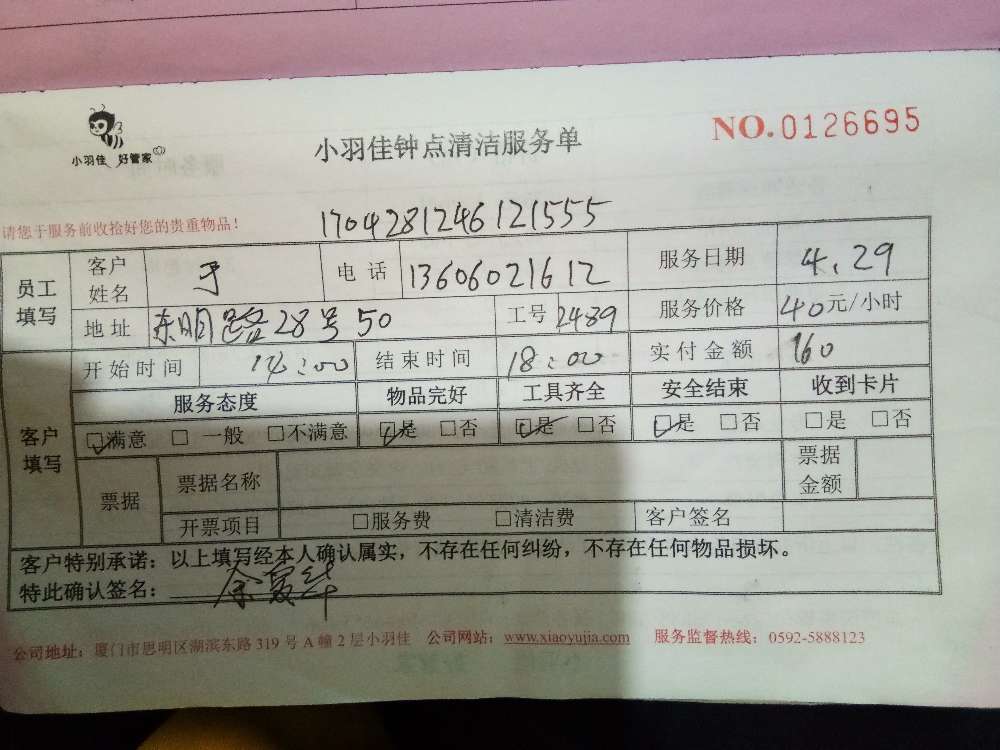 小羽佳 好管家
小羽佳钟点清洁服务单
NO.0126695
请您于服务前收拾好您的贵重物品!
1704281246121555
员工填写
客户姓名
电话 13606021612
服务日期 4.29
地址 东明路28号50
工号 2489
服务价格 40元/小时
客户填写
开始时间 14:00
结束时间 18:00
实付金额 160
服务态度 物品完好 工具齐全 安全结束 收到卡片
☑满意 □ 一般 □不满意 ☑是 □否 ☑是 □否 ☑是 □否 □是 □否
票据
票据名称
票据金额
开票项目 □服务费 □清洁费 客户签名
客户特别承诺:以上填写经本人确认属实,不存在任何纠纷,不存在任何物品损坏。
特此确认签名:
公司地址:厦门市思明区湖滨东路 319 号 A 幢 2 层小羽佳 公司网站:www.xiaoyujia.com 服务监督热线:0592-5888123